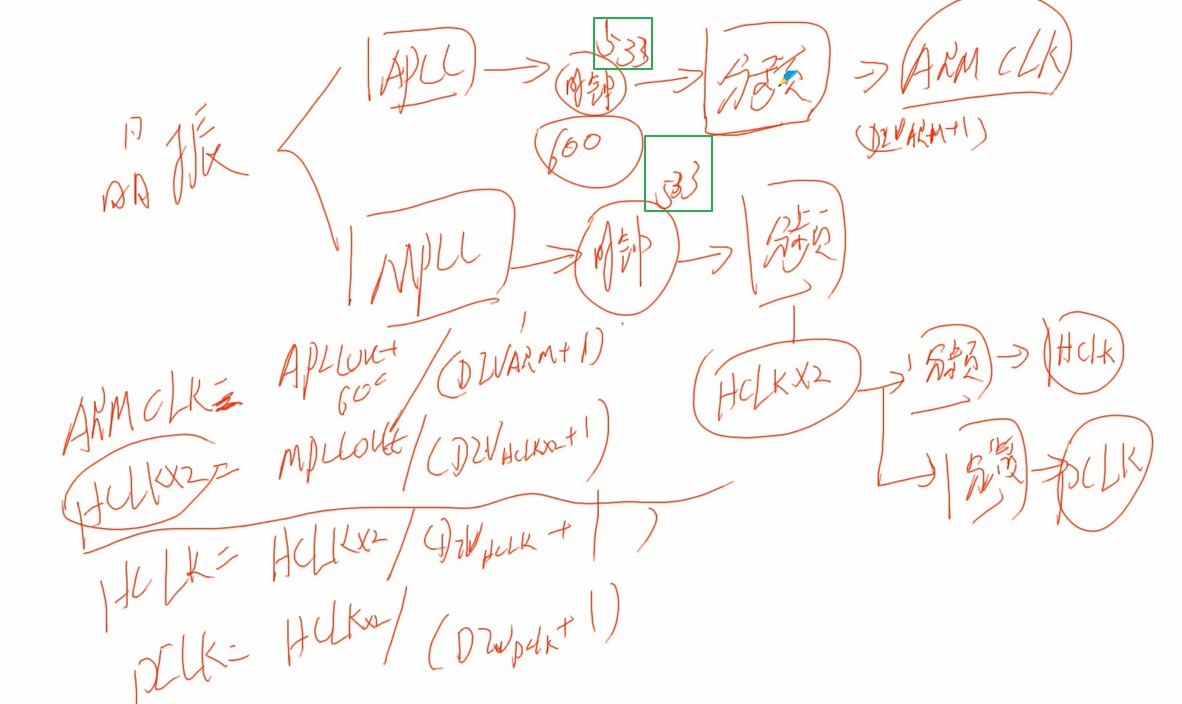 晶振
APLL
533
时钟
600
分频
ARMCLK
(DIVARM+1)
MPLL
533
时钟
分频
HCLKX2
分频
HCLK
分频
PCLK
ARMCLK= APLLOUT / (DIVARM+1)
600
HCLKX2= MPLLOUT / (DIVHCLKX2+1)
HCLK= HCLKX2 / (DIVHCLK+1)
PCLK= HCLKX2 / (DIVPCLK+1)